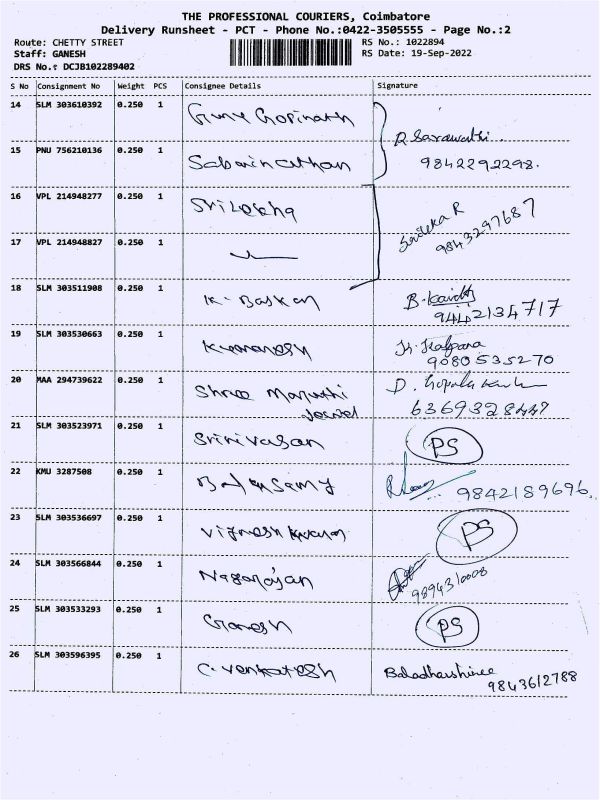 THE PROFESSIONAL COURIERS, Coimbatore
Delivery Runsheet - PCT - Phone No.:0422-3505555 - Page No.:2
Route: CHETTY STREET RS No.: 1022894
Staff: GANESH RS Date: 19-Sep-2022
DRS No.: DCJB102289402
S No Consignment No Weight PCS Consignee Details Signature
14 SLM 303610392 0.250 1 Gopinath
R Sarawathi
15 PNU 756210136 0.250 1 Sabarinathan 9842292298.
16 VPL 214948277 0.250 1 Srilekha
R 9843297687
17 VPL 214948827 0.250 1
18 SLM 303511908 0.250 1 K. Baskan B.
9442134717
19 SLM 303530663 0.250 1 K. Kalpana
9080535270
20 MAA 294739622 0.250 1 Shree Maruthi D.
Jewel 6369328447
21 SLM 303523971 0.250 1 Srinivasan PS
22 KMU 3287508 0.250 1 9842189696.
23 SLM 303536697 0.250 1 PS
24 SLM 303566844 0.250 1 Nagarajan
9894310008
25 SLM 303533293 0.250 1 Ganesh PS
26 SLM 303596395 0.250 1 C. Venkatesh
9843612788